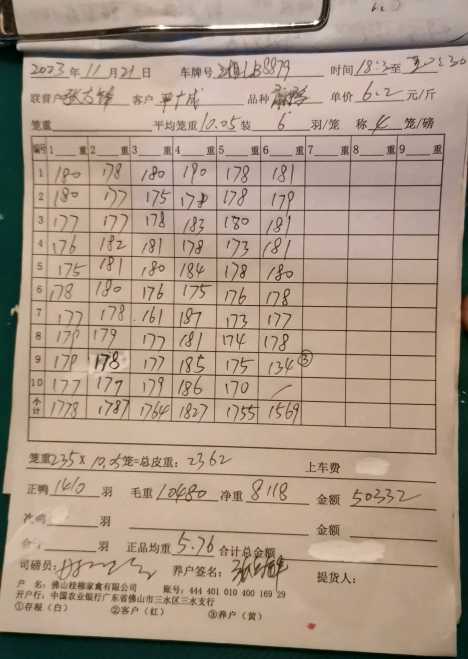 2023 年 11 月 21 日 车牌号 LB8879 时间 18:3 至
联营户 客户 品种 单价 6.2 元/斤
笼重 平均笼重 10.05 装 6 羽/笼 称 4 笼/磅
编号 1 2 3 4 5 6 7 8 9 重
1 180 178 180 190 178 181
2 180 177 175 178 178 179
3 177 177 178 183 180 181
4 176 182 181 178 173 181
5 175 181 180 184 178 180
6 178 180 176 175 176 178
7 177 178 161 187 173 177
8 179 179 177 181 174 178
9 179 178 177 185 175 134 ③
10 177 177 179 186 170
小计 1778 1787 1764 1827 1755 1569
笼重 235 × 10.05 笼=总皮重: 2362 上车费
正鸭 1410 羽 毛重 10480 净重 8118 金额 50332
羽 金额
羽 正品均重 5.76 合计总金额
司磅员: 养户签名: 提货人:
户 名: 佛山桂柳家禽有限公司 账号: 444 401 010 400 169 29
开户行: 中国农业银行广东省佛山市三水区三水支行
①存根(白) ②客户(红) ③养户(黄)